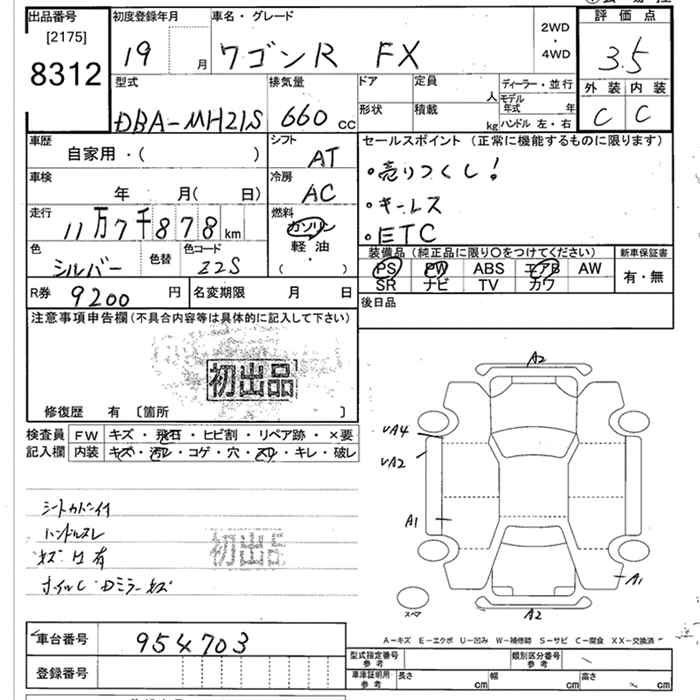 出品番号
[2175]
8312
初度登録年月
19 月
車名・グレード
ワゴンR FX
2WD
・
4WD
評価点
3.5
外装 内装
C C
型式
DBA-MH21S
排気量
660 CC
ドア
形状
定員 人
積載 kg
ディーラー・並行
モデル年式 年
ハンドル 左・右
車歴
自家用・( )
シフト
AT
車検
年 月( 日)
冷房
AC
走行
11万7千878km
燃料
ガソリン
軽油
・
( )
色
シルバー
色替
色コード
Z2S
R券 9200 円
名変期限 月 日
セールスポイント(正常に機能するものに限ります)
・売りつくし!
・キーレス
・ETC
装備品(純正品に限り〇をつけてください)
PS PW ABS エアB AW
SR ナビ TV カワ
新車保証書
有・無
後日品
注意事項申告欄(不具合内容等は具体的に記入して下さい)
初出品
修復歴 有 〔箇所 〕
検査員
記入欄
FW キズ・飛石・ヒビ割・リペア跡・×要
内装 キズ・汚レ・コゲ・穴・スリ・キレ・破レ
シートカバー付
ハンドルスレ
キズ 凹 有
ホイルC・Dミラーキズ
初出品
A2
UA4
UA2
A1
A1
スペア
A2
A-キズ E-エクボ U-凹み W-補修跡 S-サビ C-腐食 XX-交換済
車台番号 954703
登録番号
型式指定番号
参考
類別区分番号
参考
車庫証明用
参考
長さ cm
幅 cm
高さ cm